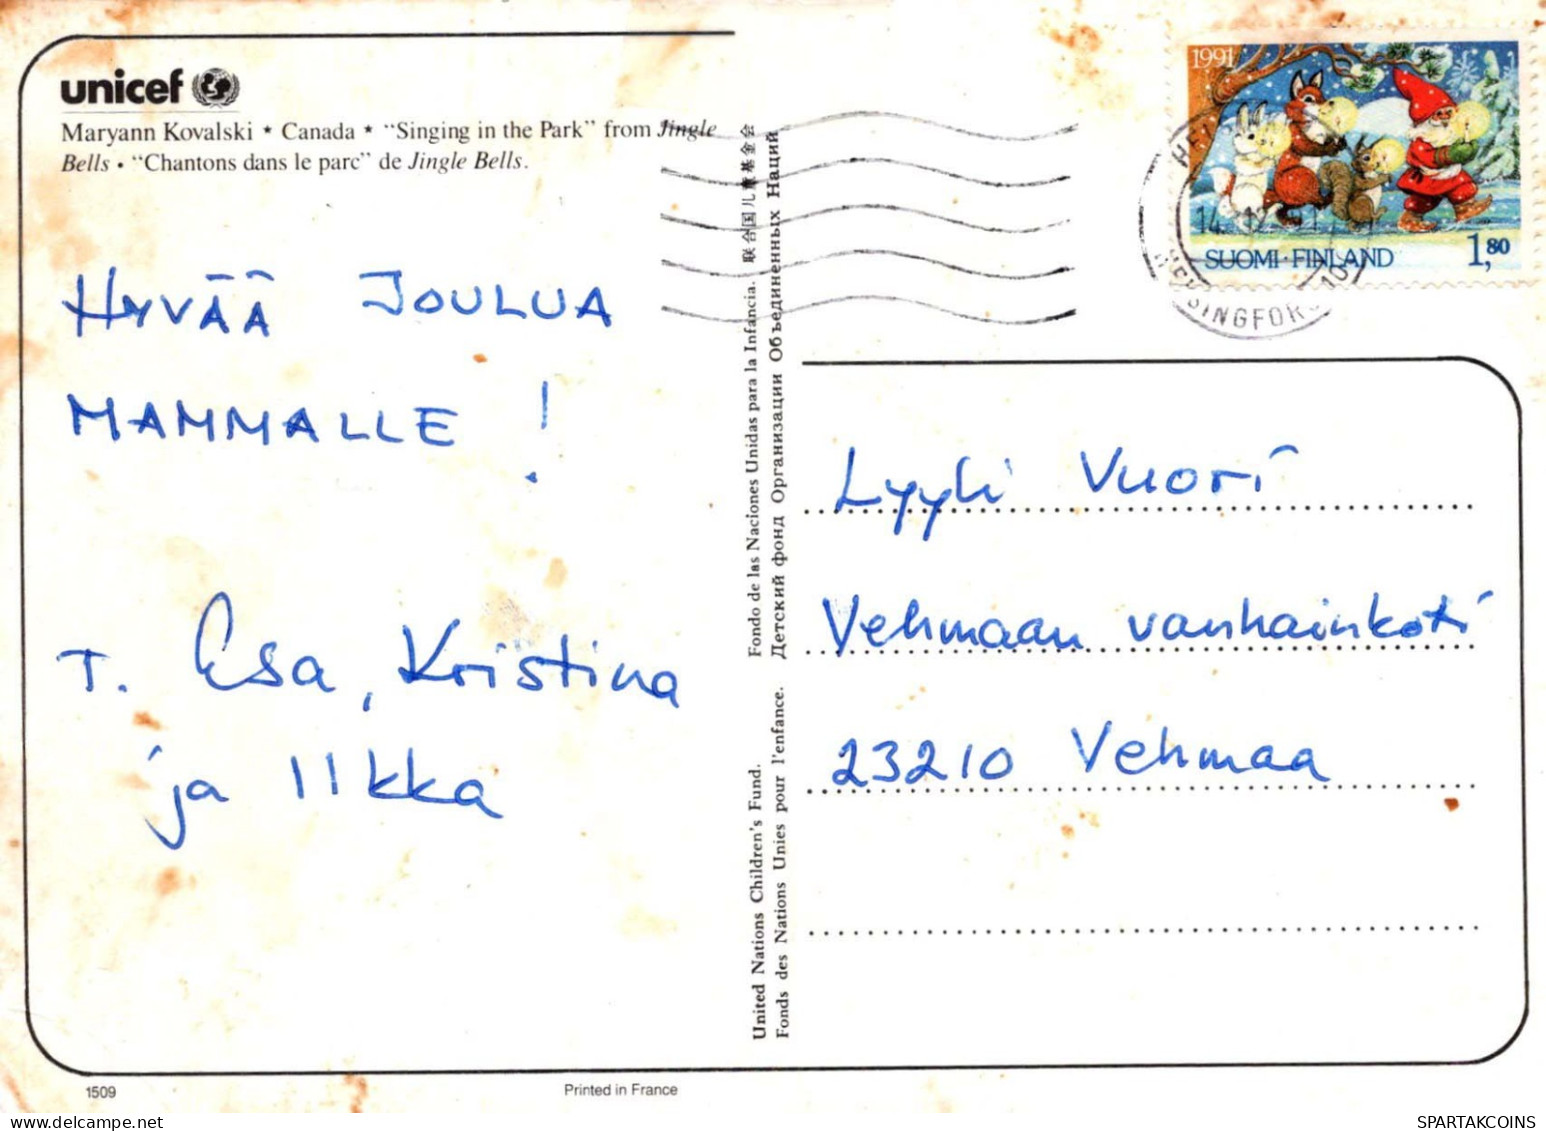 unicef
Maryann Kovalski ★ Canada ★ “Singing in the Park” from Jingle
Bells • “Chantons dans le parc” de Jingle Bells.
HYVÄÄ JOULUA
MAMMALLE !
T. Esa, Kristina
ja Iikka
1509
Printed in France
United Nations Children's Fund. Fondo de las Naciones Unidas para la Infancia. 联合国儿童基金会
Fonds des Nations Unies pour l'enfance. Детский фонд Организации Объединенных Наций
1991
SUOMI·FINLAND 1,80
14.12.
Lyyli Vuori
Vehmaan vanhainkoti
23210 Vehmaa
SPARTAKCOINS